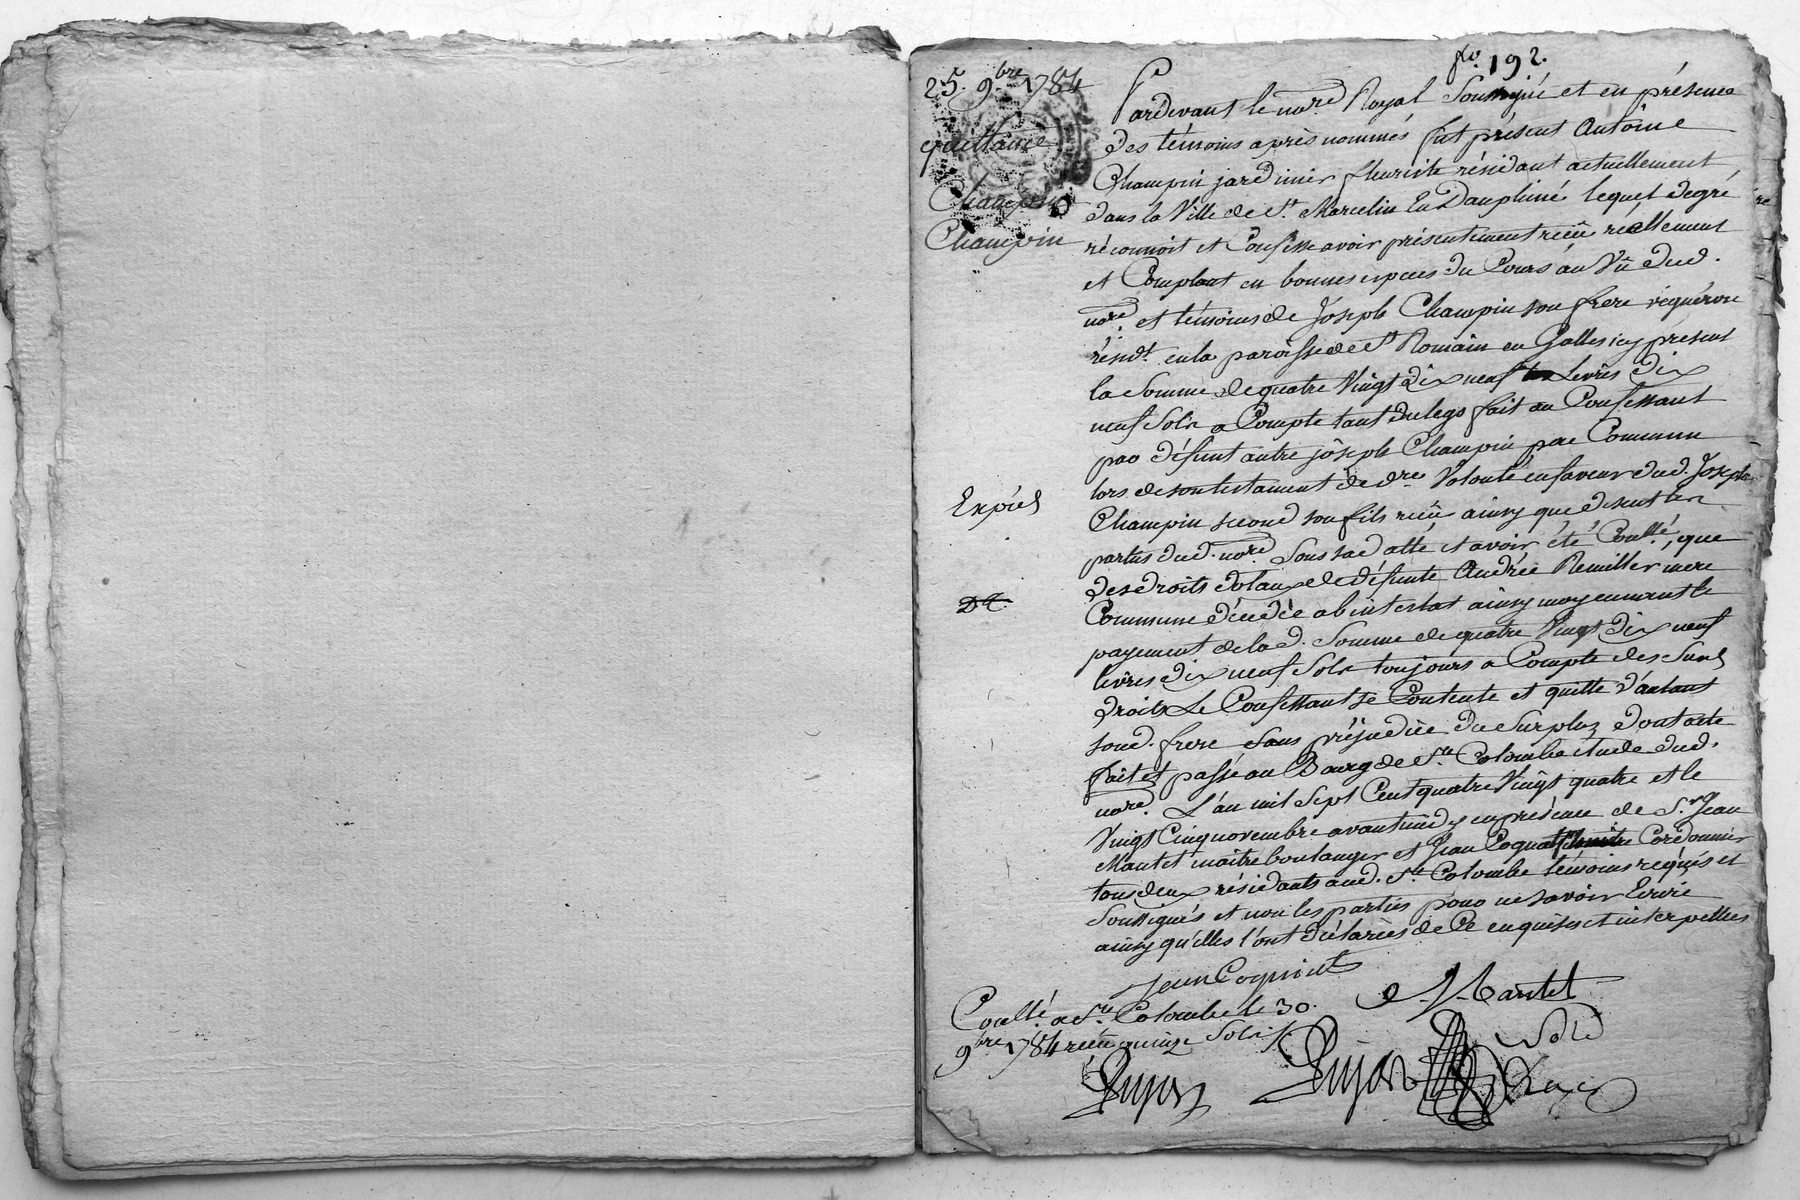 fo. 192.
25. 9.bre 1784
quittance
Champin
Champin
Pardevant le nore. Royal Soussigné et en présence
des témoins après nommés fut présent Antoine
Champin jardinier fleuriste résidant actuellement
dans la Ville de St. Marcelin En Dauphiné lequel degré
réconnoit et Confesse avoir présentement reçû réellement
et Comptant en bonnes especes du Cours au Vû dud.
nore. et témoins de Joseph Champin son frere vigneron
résidt. en la paroisse de St. Romain en Galles icy present
la Somme de quatre Vingt dix neuf Livres dix
neuf Sols a Compte tant du legs fait au Confessant
par défunt autre joseph Champin pere Commun
lors de son testament de dre. Volonté en faveur dud. Joseph
Champin second son fils reçû ainsy que disent les
parties dud. nore. Sous sa datte et avoir été Conllé, que
des droits de défunte Andrée Remiller mere
Commune décédée abintestat ainsy moyennant le
payement de lad. Somme de quatre Vingt dix neuf
livres dix neuf Sols toujours a Compte des Susd
droits Le Confessant se Contente et quitte d'autant
soud. frere Sans préjudice du Surplus dont acte
fait et passé au Bourg de Ste. Colombe étude dud.
nore. L'an mil Sept Cent quatre Vingt quatre et le
Vingt Cinq novembre avant midy en présence de Sr. Jean
Mantet maître boulanger et Jean Coquat Cordonnier
tous deux résidants aud. Ste. Colombe témoins requis et
Soussignés et non les parties pour ne savoir Ecrire
ainsy qu'elles l'ont déclarées de Ce enquises et interpellées
Expiéd
Jean Cognat
J. Mantet
Conllé. a Ste. Colombe le 30
9.bre 1784 reçu quinze Sols
Dujon
Dujon